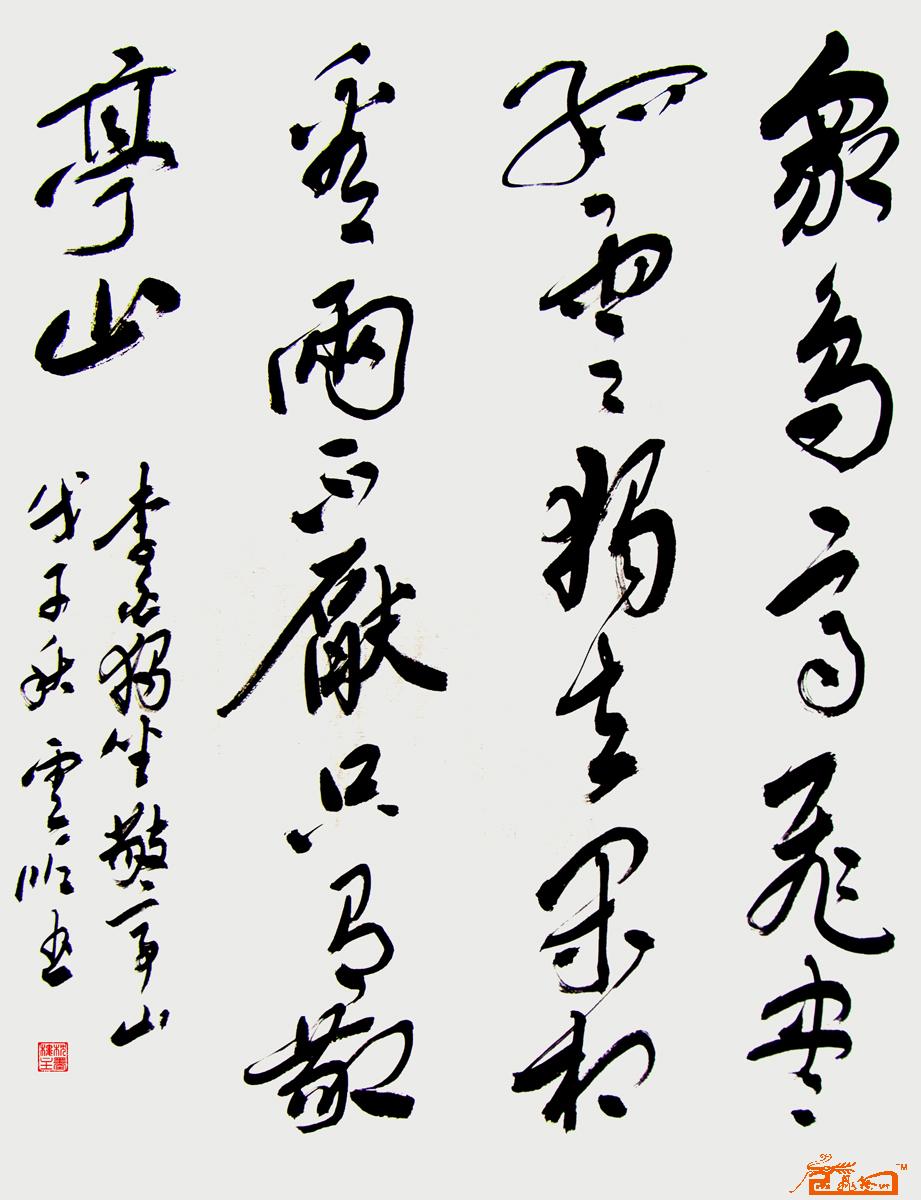 眾鳥高飛盡
孤雲獨去閑相
看兩不厭只有敬
亭山
李白獨坐敬亭山
戊子秋雲書